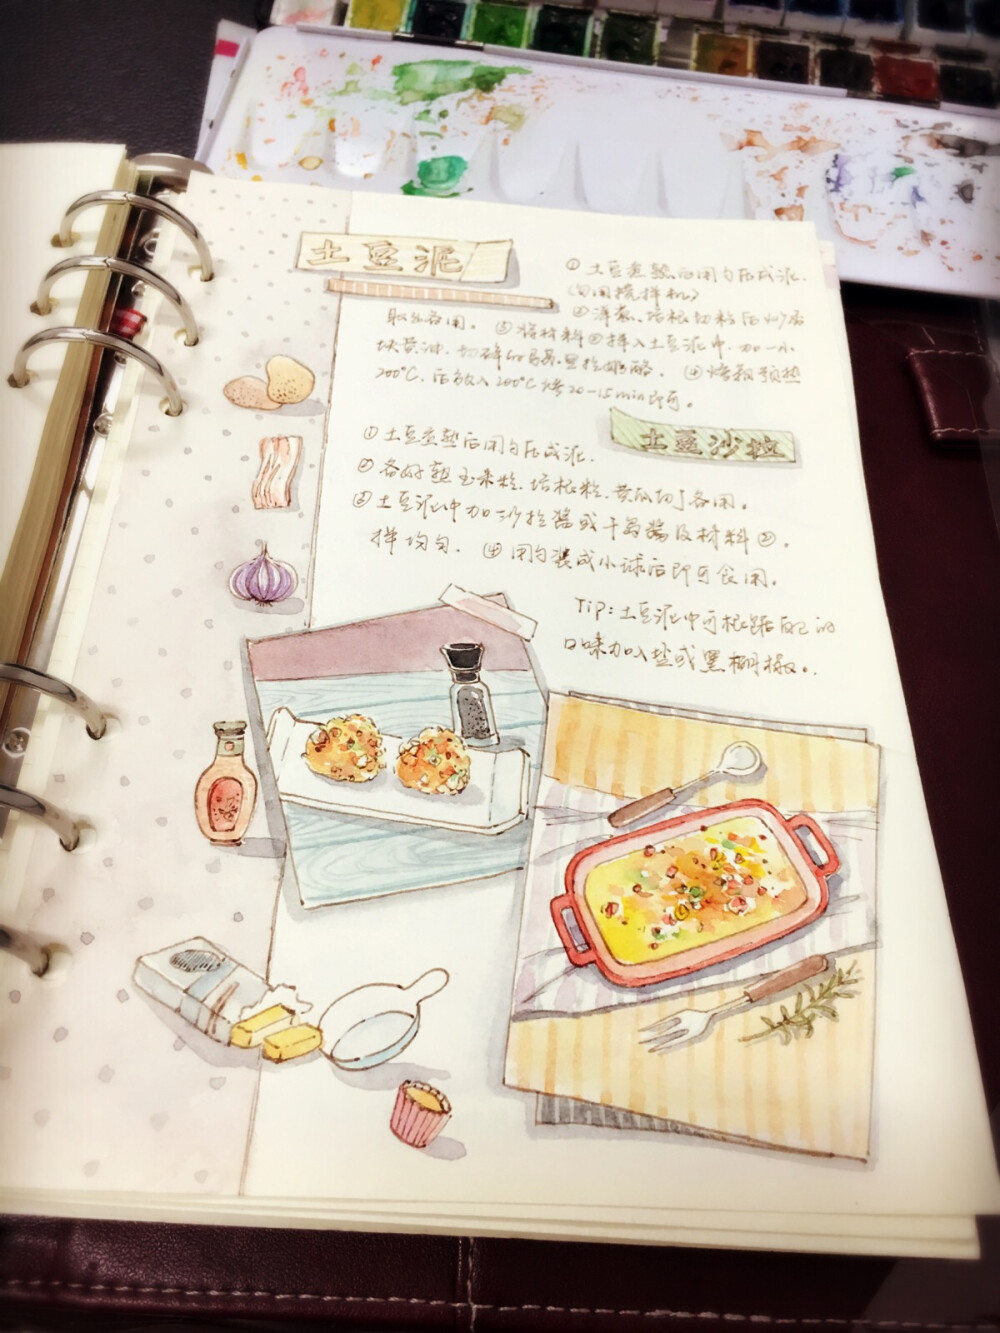 土豆泥
① 土豆煮熟后用勺压成泥.
(可用搅拌机)
② 洋葱、培根切粒后炒香
取出备用。 ③ 将材料②拌入土豆泥中,加一小
块黄油、切碎的 黑椒 。 ④ 烤箱预热
200℃,后放入200℃烤20-15min即可。
土豆沙拉
① 土豆煮熟后用勺压成泥.
② 备好熟玉米粒、培根粒、黄瓜切丁备用。
③ 土豆泥中加沙拉酱或千岛酱及材料②。
拌均匀. ④ 用勺装成小球后即可食用。
Tip: 土豆泥中可根据自己的
口味加入盐或黑胡椒。